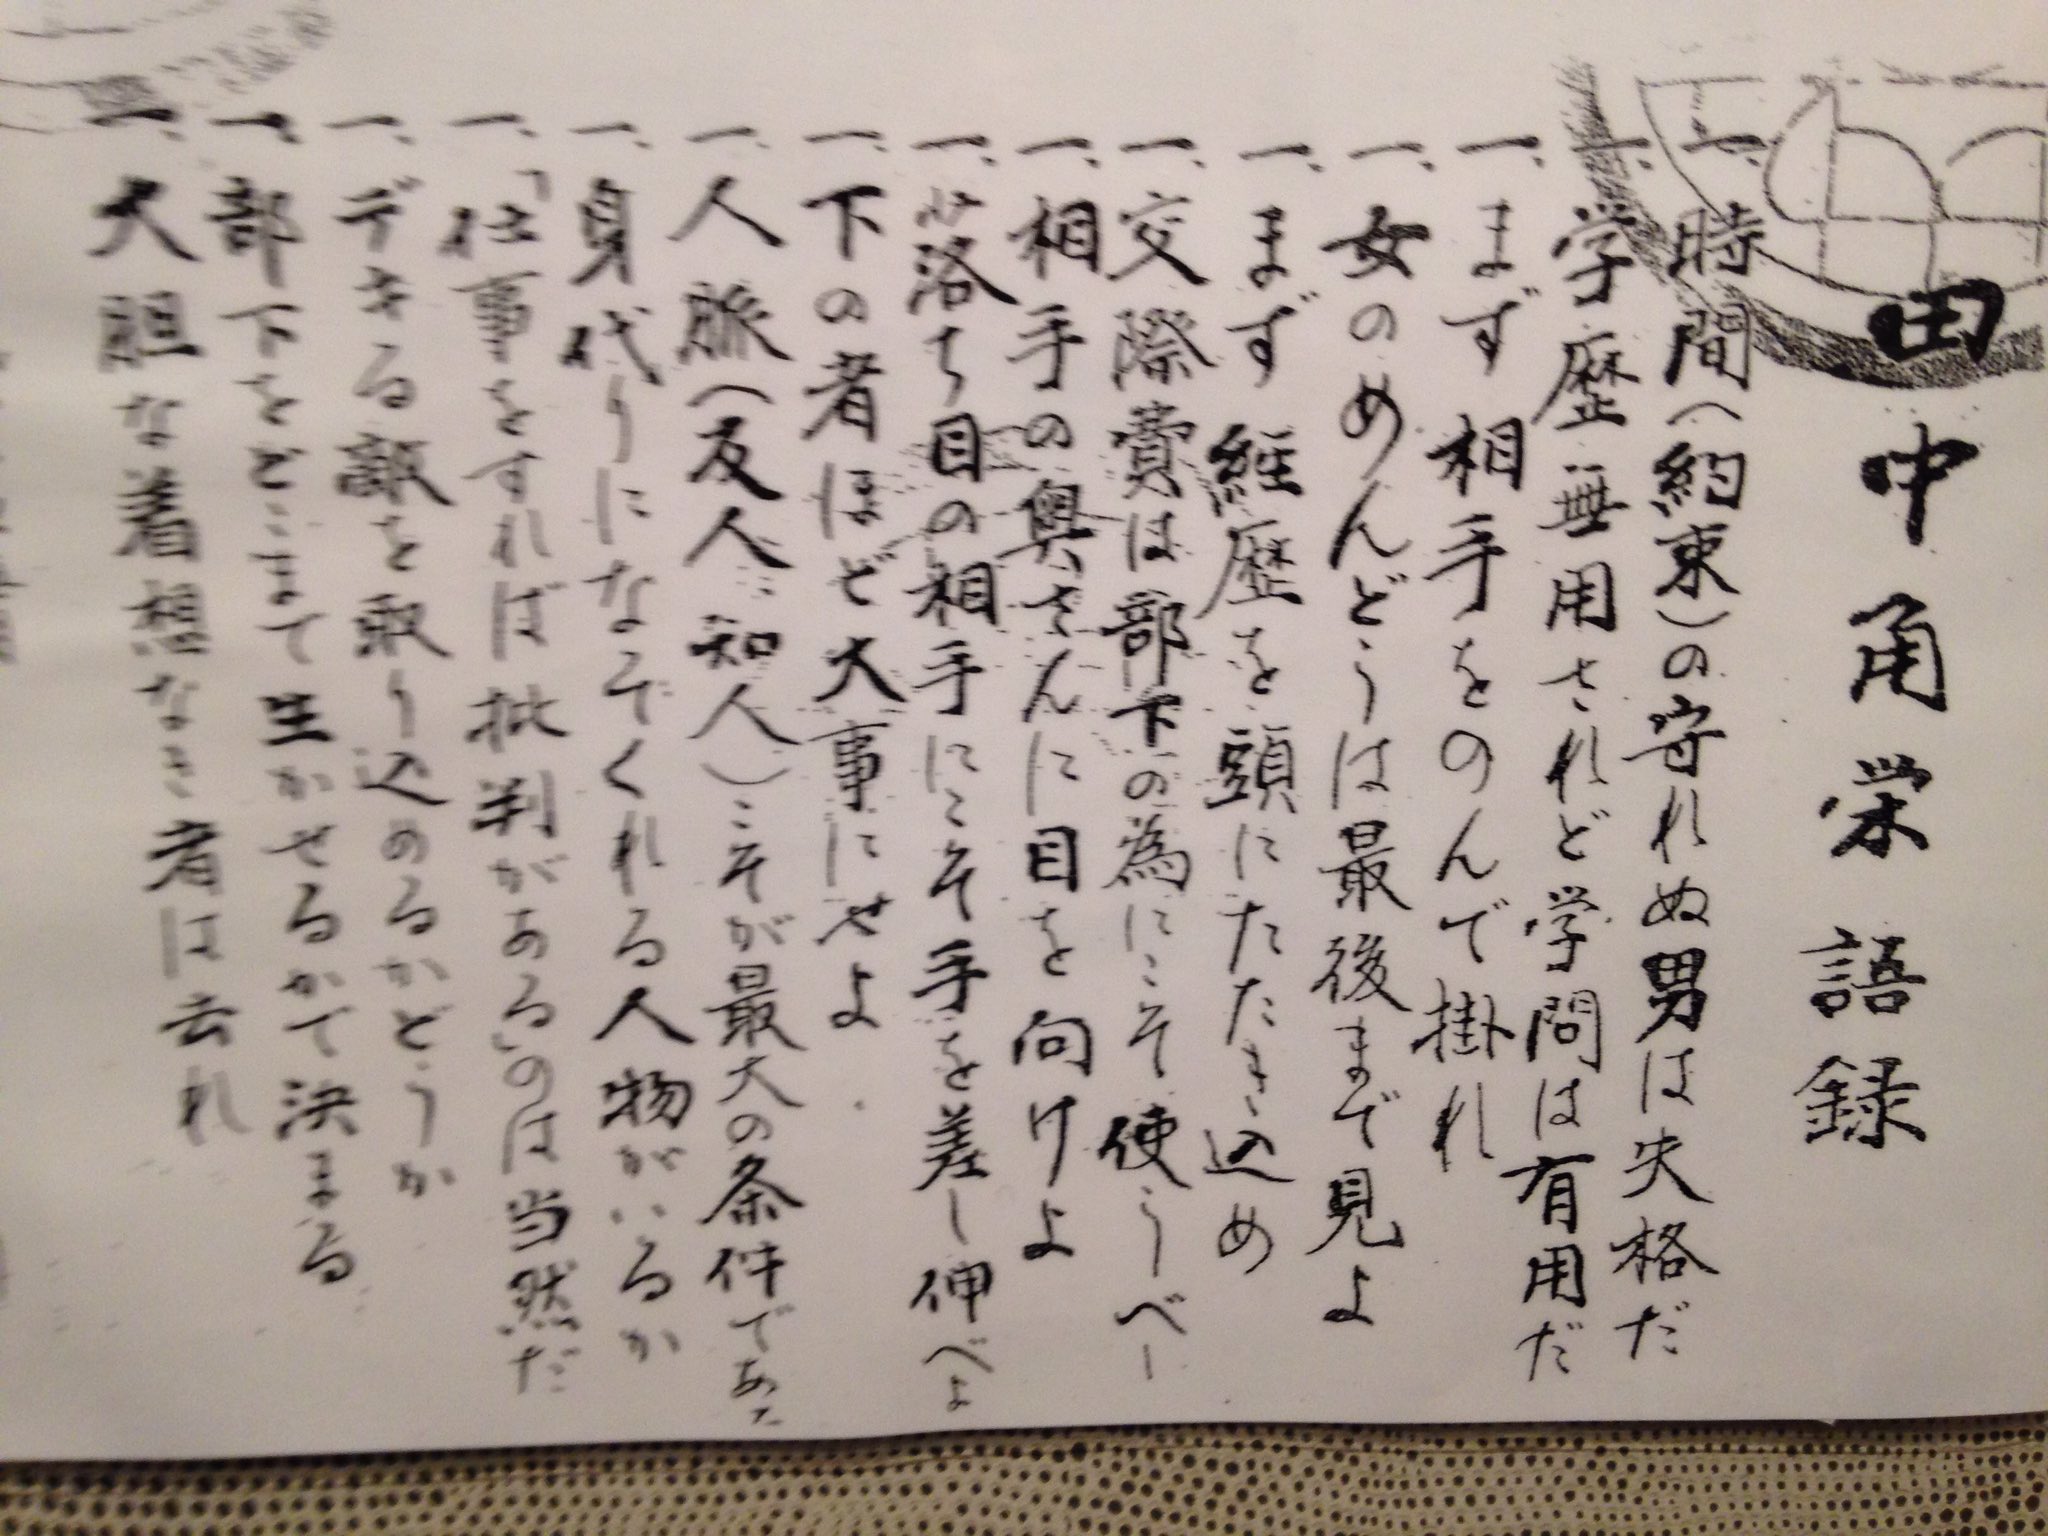 田中角栄語録
一、時間(約束)の守れぬ男は失格だ
一、学歴無用されど学問は有用だ
一、まず相手をのんで掛れ
一、女のめんどうは最後まで見よ
一、まず経歴を頭にたたき込め
一、交際費は部下の為にこそ使うべし
一、相手の奥さんに目を向けよ
一、落ち目の相手にこそ手を差し伸べよ
一、下の者ほど大事にせよ
一、人脈(友人・知人)こそが最大の条件である
一、身代りになってくれる人物がいるか
一、「仕事をすれば批判がある」のは当然だ
一、デキる敵を取り込めるかどうか
一、部下をどこまで生かせるかで決まる
一、大胆な着想なき者は去れ